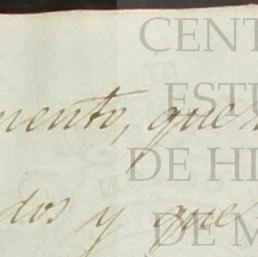 mento, que
dos y que
CENT
EST
DE HI
DE M